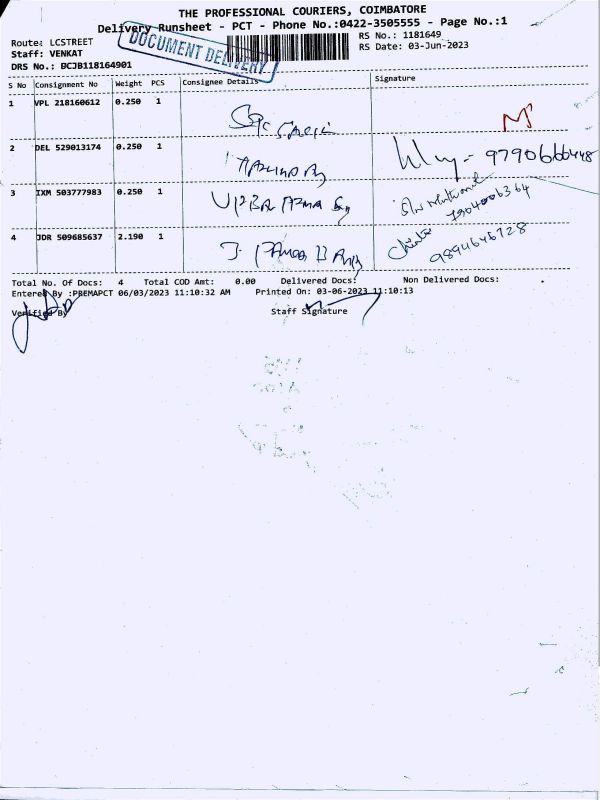 THE PROFESSIONAL COURIERS, COIMBATORE
Delivery Runsheet - PCT - Phone No.:0422-3505555 - Page No.:1
DOCUMENT DELIVERY
Route: LCSTREET
RS No.: 1181649
Staff: VENKAT
RS Date: 03-Jun-2023
DRS No.: BCJB118164901
S No Consignment No Weight PCS Consignee Details Signature
1 VPL 218160612 0.250 1
2 DEL 529013174 0.250 1 9790666448
3 IXM 503777983 0.250 1
4 JDR 509685637 2.190 1 9894646728
Total No. Of Docs: 4 Total COD Amt: 0.00 Delivered Docs: Non Delivered Docs:
Entered By :PREMAPCT 06/03/2023 11:10:32 AM Printed On: 03-06-2023 11:10:13
Verified By Staff Signature